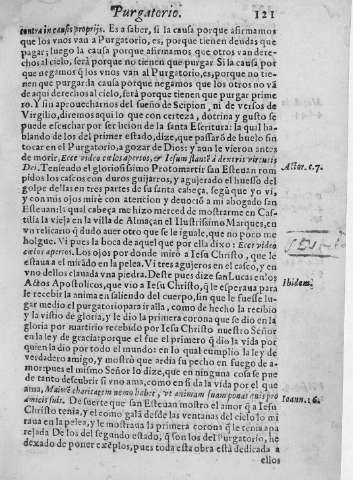 Purgatorio. 121
contraria in causis proprijs. Es a saber, si la causa porque afirmamos
que los vnos van a Purgatorio, es, porque tienen deudas que
pagar; luego la causa porque afirmamos que otros van dere-
chos al cielo, será porque no tienen que purgar. Si la causa por
que negamos q̃ los vnos van al Purgatorio, es, porque no tie-
nen que purgar: la causa porque negamos que los otros no vã
de aqui derechos al cielo, será porque tienen que purgar prime
ro. Y sin aprouecharnos del sueño de Scipion, ni de versos de
Virgilio, diremos aqui lo que con certeza, dotrina y gusto se
puede escuchar por ser licion de la santa Escritura: la qual ha-
blando de los del primer estado, dize, que passarõ de buelo sin
tocar en el Purgatorio, a gozar de Dios: y aun le vieron antes
de morir, Ecce video cœlos apertos, & Iesum stantẽ à dextris virtutis
Dei. Teniendo el gloriosissimo Protomartir san Esteuan rom
pidos los cascos con duros guijarros, y agujerado el huesso del
golpe dellas en tres partes de su santa cabeça, segũ que yo vi,
y con mis ojos miré con atencion y deuoció a mi abogado san
Esteuan: la qual cabeça me hizo merced de mostrarme en Cas-
tilla la vieja en la villa de Almaçan el Ilustrissimo Marques, en
vn relicario q̃ dudo auer otro que se le iguale, que no poco me
holgue. Vi pues la boca de aquel que por ella dixo: Ecce video
cœlos apertos. Los ojos por donde miró a Iesu Christo, que le
estaua a el mirãdo en la pelea. Vi tres agujeros en el casco, y en
vno dellos clauada vna piedra. Deste pues dize san Lucas en los
Actos Apostolicos, que vio a Iesu Christo, q̃ le esperaua para
le recebir la anima en saliendo del cuerpo, sin que le fuesse lu-
gar medio el purgatorio para ir allá, como de hecho la recibio
y la vistio de gloria, y le dio la primera corona que se dio en la
gloria por martirio recebido por Iesu Christo nuestro Señor
en la ley de gracia: porque el fue el primero q̃ dio la vida por
quien la dio por todo el mundo: en lo qual cumplio la ley de
verdadero amigo, y mostrò que ardia su pecho en fuego de a-
mor: pues el mismo Señor lo dize, que en ninguna cosa se pue
de tanto descubrir si vno ama, como en si da la vida por el que
ama, Maiorẽ charitatem nemo habet, vt animam suam ponat quis pro
amicis suis. De suerte que san Esteuan mostro el amor q̃ a Iesu
Christo tenia, y el como galã desde las ventanas del cielo lo mi
raua en la pelea, y le mostraua la primera corona q̃ le tenia apa
rejada. De los del segundo estado, q̃ son los del Purgatorio, he
dexado de poner exẽplos, pues toda esta obra está dedicada a
ellos
Actor. c. 7.
Ibidem.
Ioann. 16.